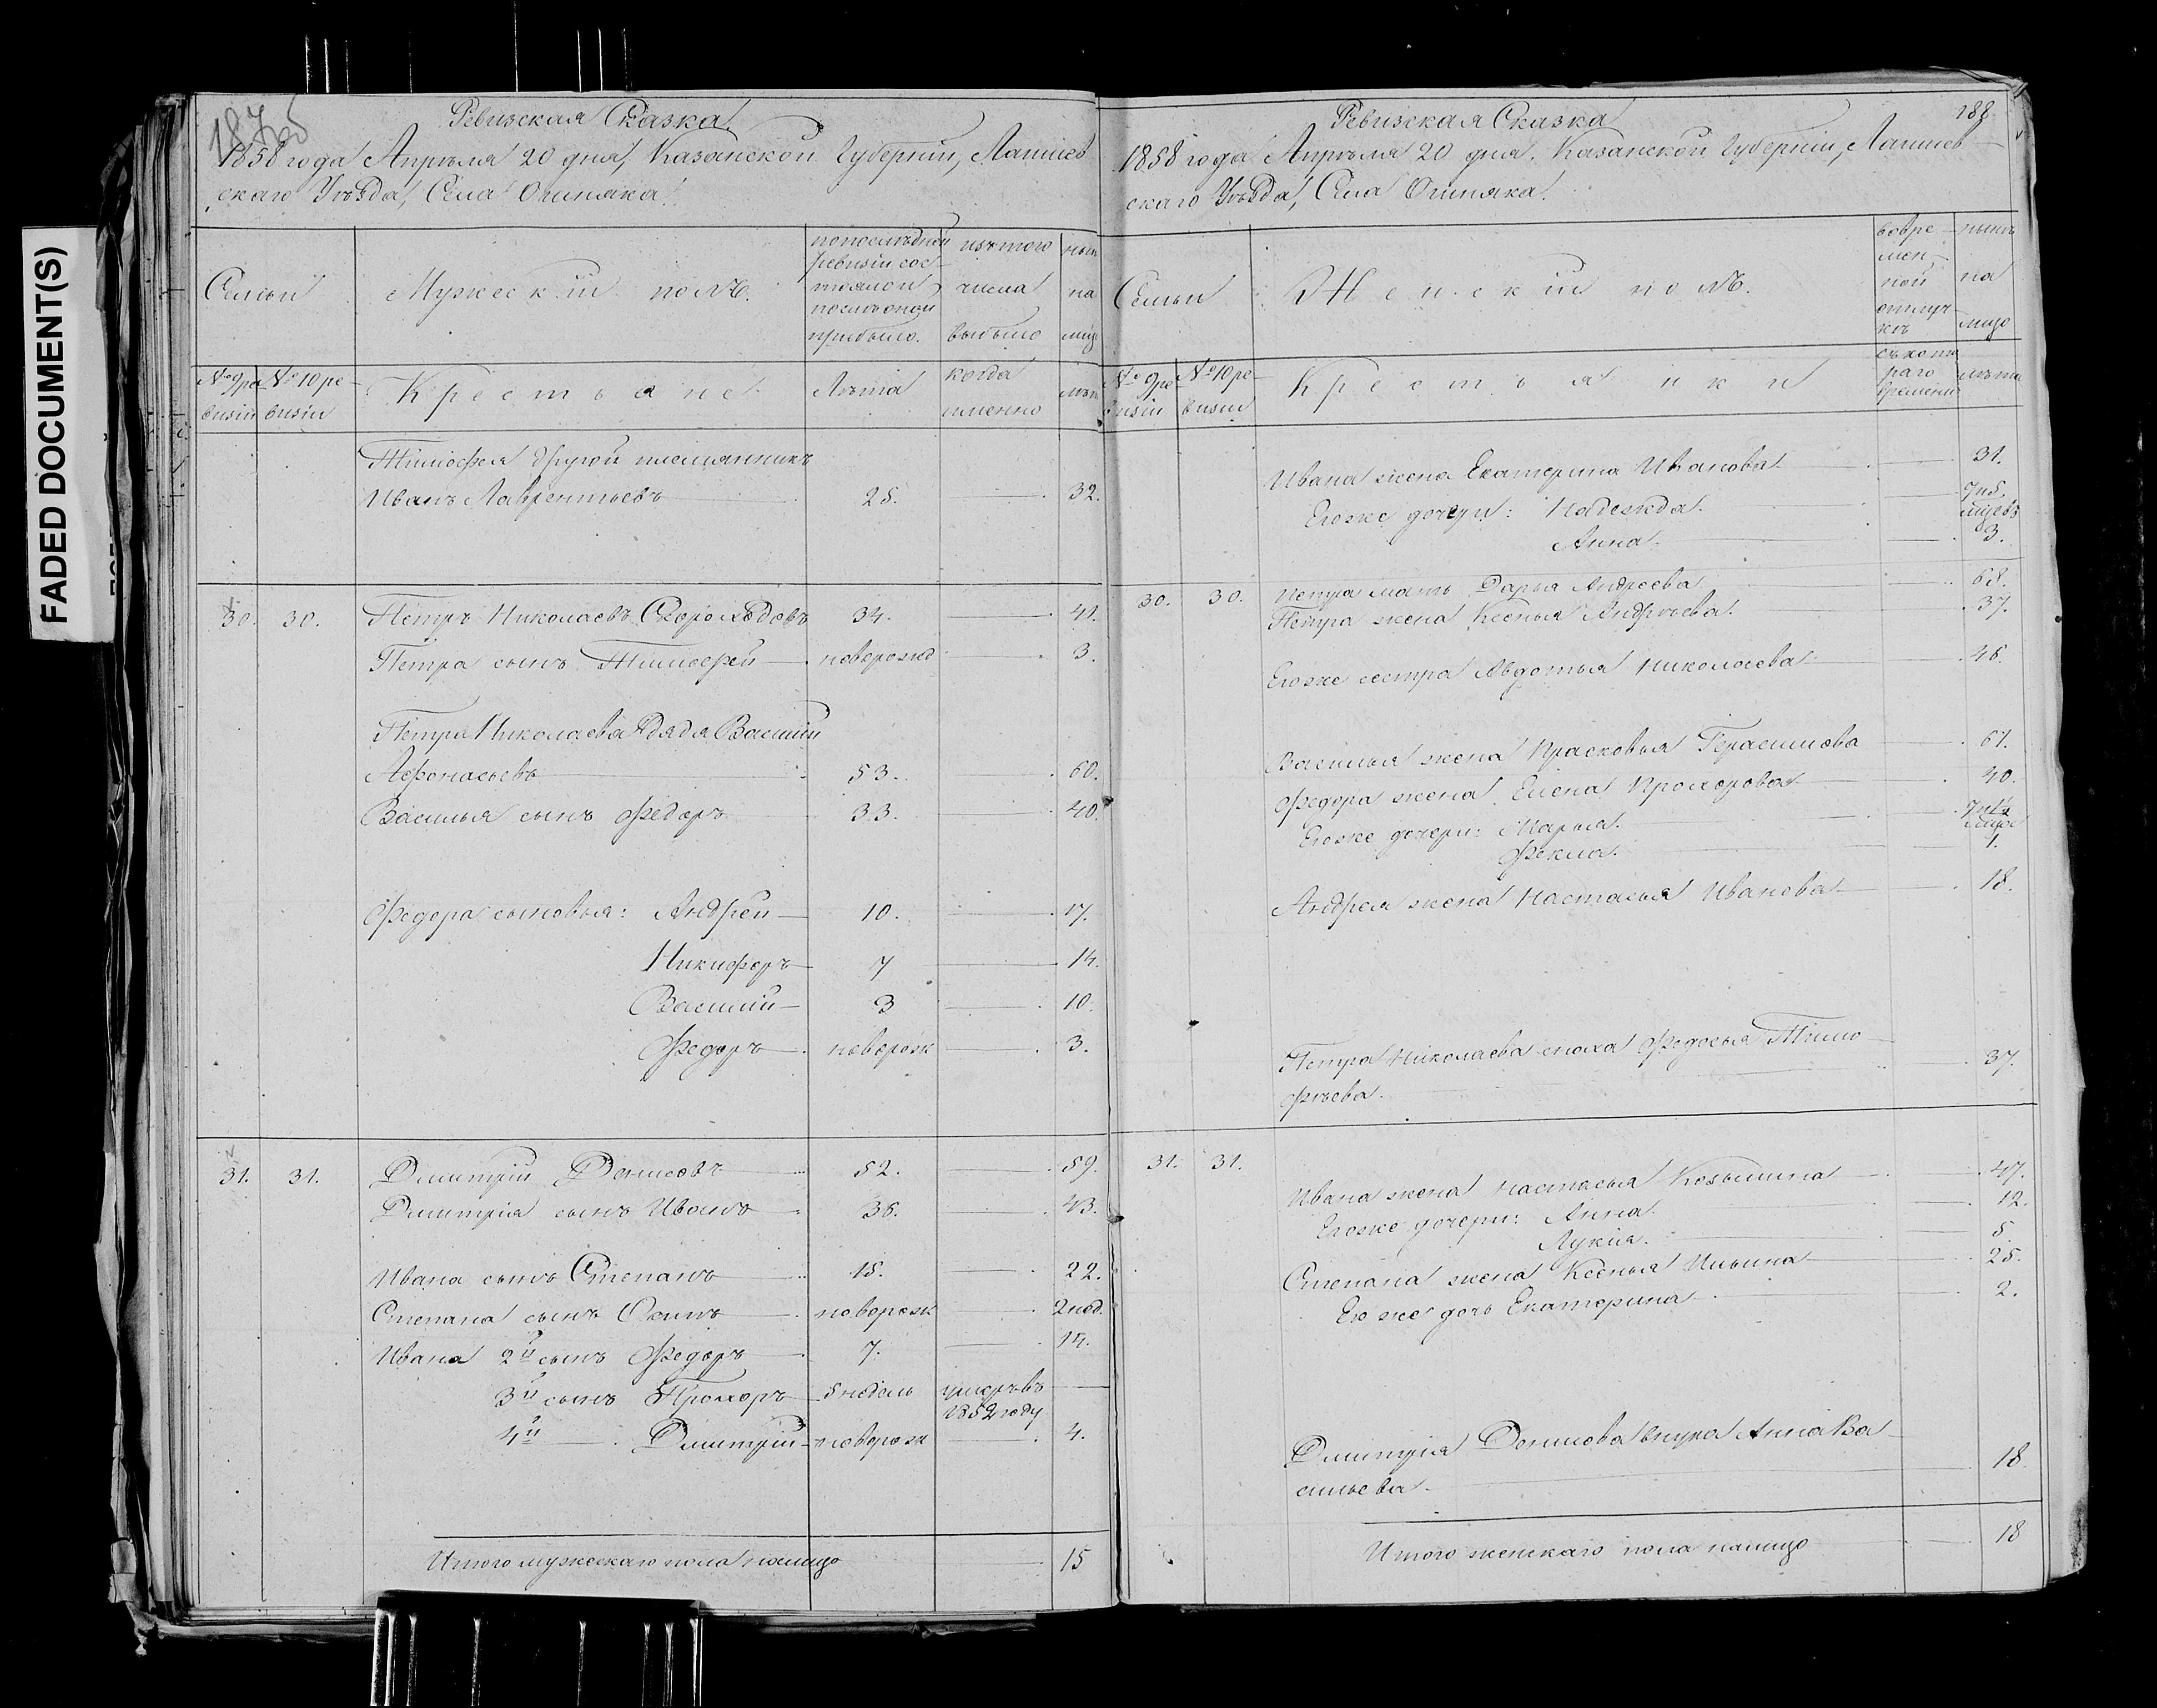 FADED DOCUMENT(S)
Ревизская Сказка
1858 года Апрѣля 20 дня, Казанской Губерніи, Лаишев
скаго Уѣзда, Села Ошняка.
Семьи
Мужескій полъ.
по послѣдней
ревизіи сос-
тояло и
послѣ оной
прибыло.
изъ того
числа
выбыло
нын
на
лиц
№ 9 ре
визіи
№ 10 ре-
визіи
Крестьяне
Лѣта
когда
именно
лѣт
Тимофея другой племянникъ
Иванъ Лаврентьевъ 25. 32.
30. 30. Петръ Николаевъ Скороходовъ 34. 41.
Петра сынъ Тимофей новорожд 3.
Петра Николаева дядя Василій
Афонасьевъ 53. 60.
Василья сынъ Федоръ 33. 40.
Федора сыновья: Андрей 10. 17.
Никифоръ 7 14.
Василій 3 10.
Федоръ новорож 3.
31. 31. Дмитрій Денисовъ 52. 59.
Дмитрія сынъ Иванъ 36. 43.
Ивана сынъ Степанъ 15. 22.
Степана сынъ Осипъ новорож 2 нед.
Ивана 2й сынъ Федоръ 7. 14.
3й сынъ Прохоръ 5 недѣль умеръ въ
1852 году
4й Дмитрій новорож 4.
Итого мужескаго пола налицо 15
188.
Ревизская Сказка
1858 года Апрѣля 20 дня, Казанской Губерніи, Лаишев-
скаго Уѣзда, Села Ошняка.
Семьи
Женскій полъ.
во вре-
мен-
ной
отлуч-
кѣ
нынѣ
на
лицо
№ 9 ре-
визіи
№ 10 ре-
визіи
Крестьянки
съ кото
раго
времени
лѣта
Ивана жена Екатерина Иванова 31.
Егоже дочери: Надежда.
Анна. 3.
30. 30. Петра мать Дарья Андреева 68.
Петра жена Ксенья Андрѣева 37.
Егоже сестра Авдотья Николаева 46.
Василья жена Прасковья Герасимова 61.
Федора жена Елена Прохорова 40.
Егоже дочери: Марья.
Фекла. 1.
Андрея жена Настасья Иванова 18.
Петра Николаева сноха Федосья Тимо-
фѣева. 37.
31. 31.
Ивана жена Настасья Козьмина 47.
Егоже дочери: Анна. 12.
Лукія. 5.
Степана жена Ксенья Ильина 25.
Егоже дочь Екатерина 2.
Дмитрія Денисова внука Анна Ва-
сильева. 18
Итого женскаго пола налицо 18